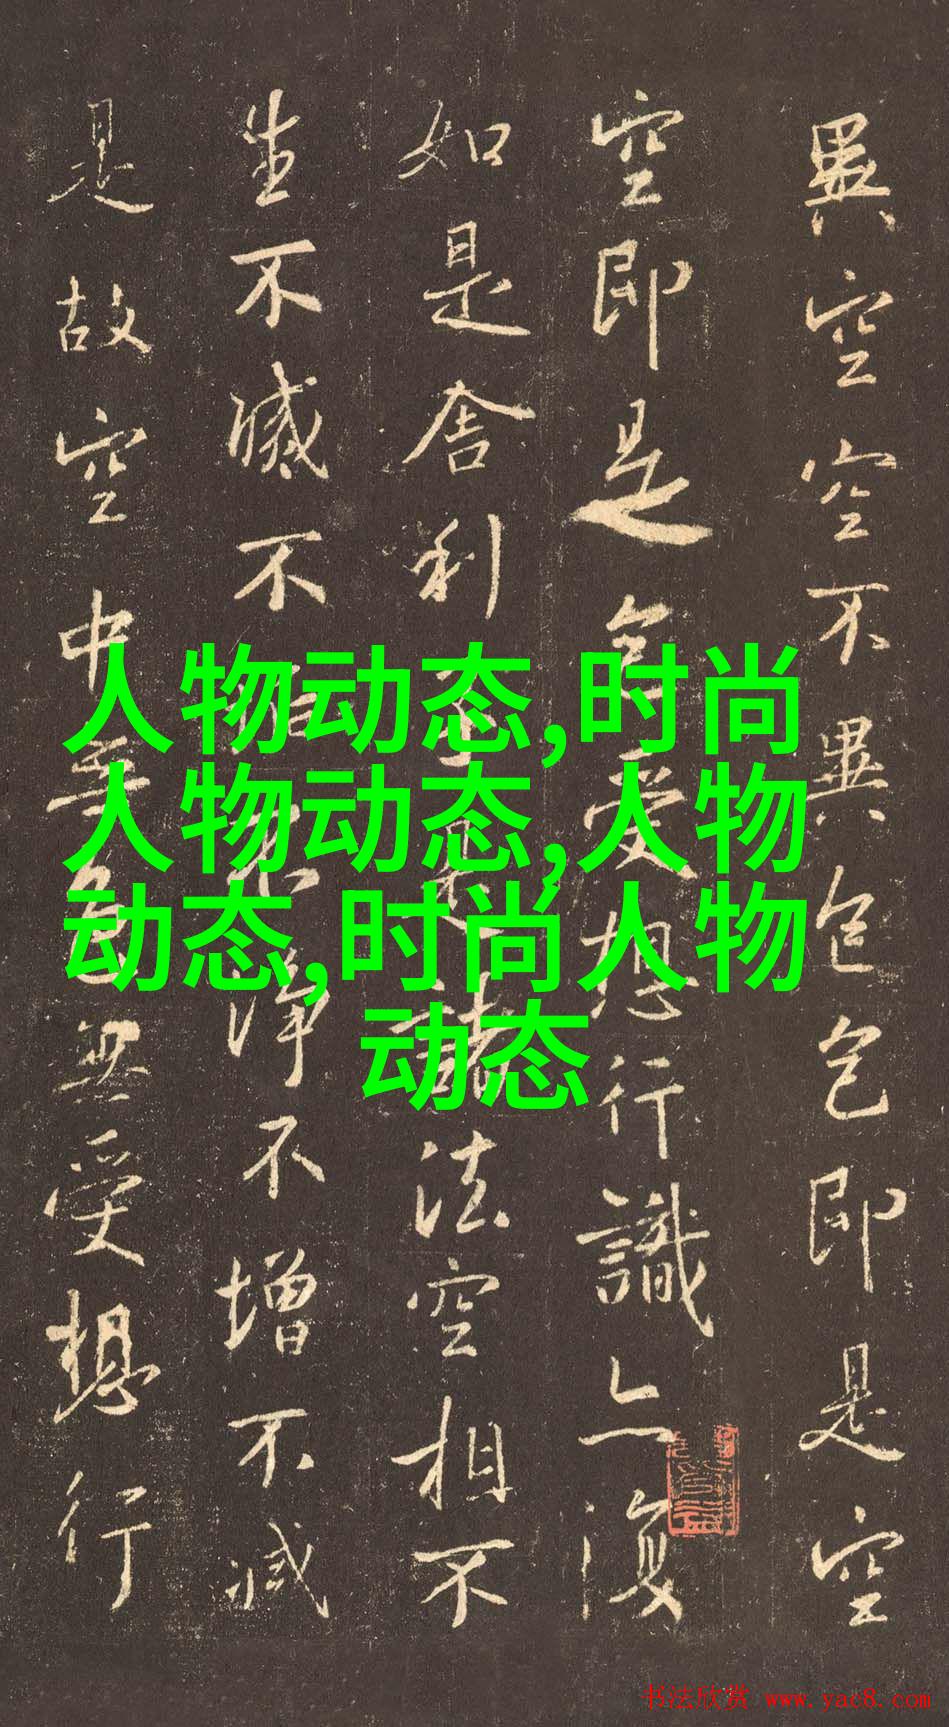 異空空不異色色即是空
空即是色受想行識亦復
如是舍利子是諸法空相不
生不滅不垢不淨不增不減
是故空中無色無受想行
人物动态,时尚
人物动态,人物
动态,时尚人物
动态
书法欣赏 www.yac8.com